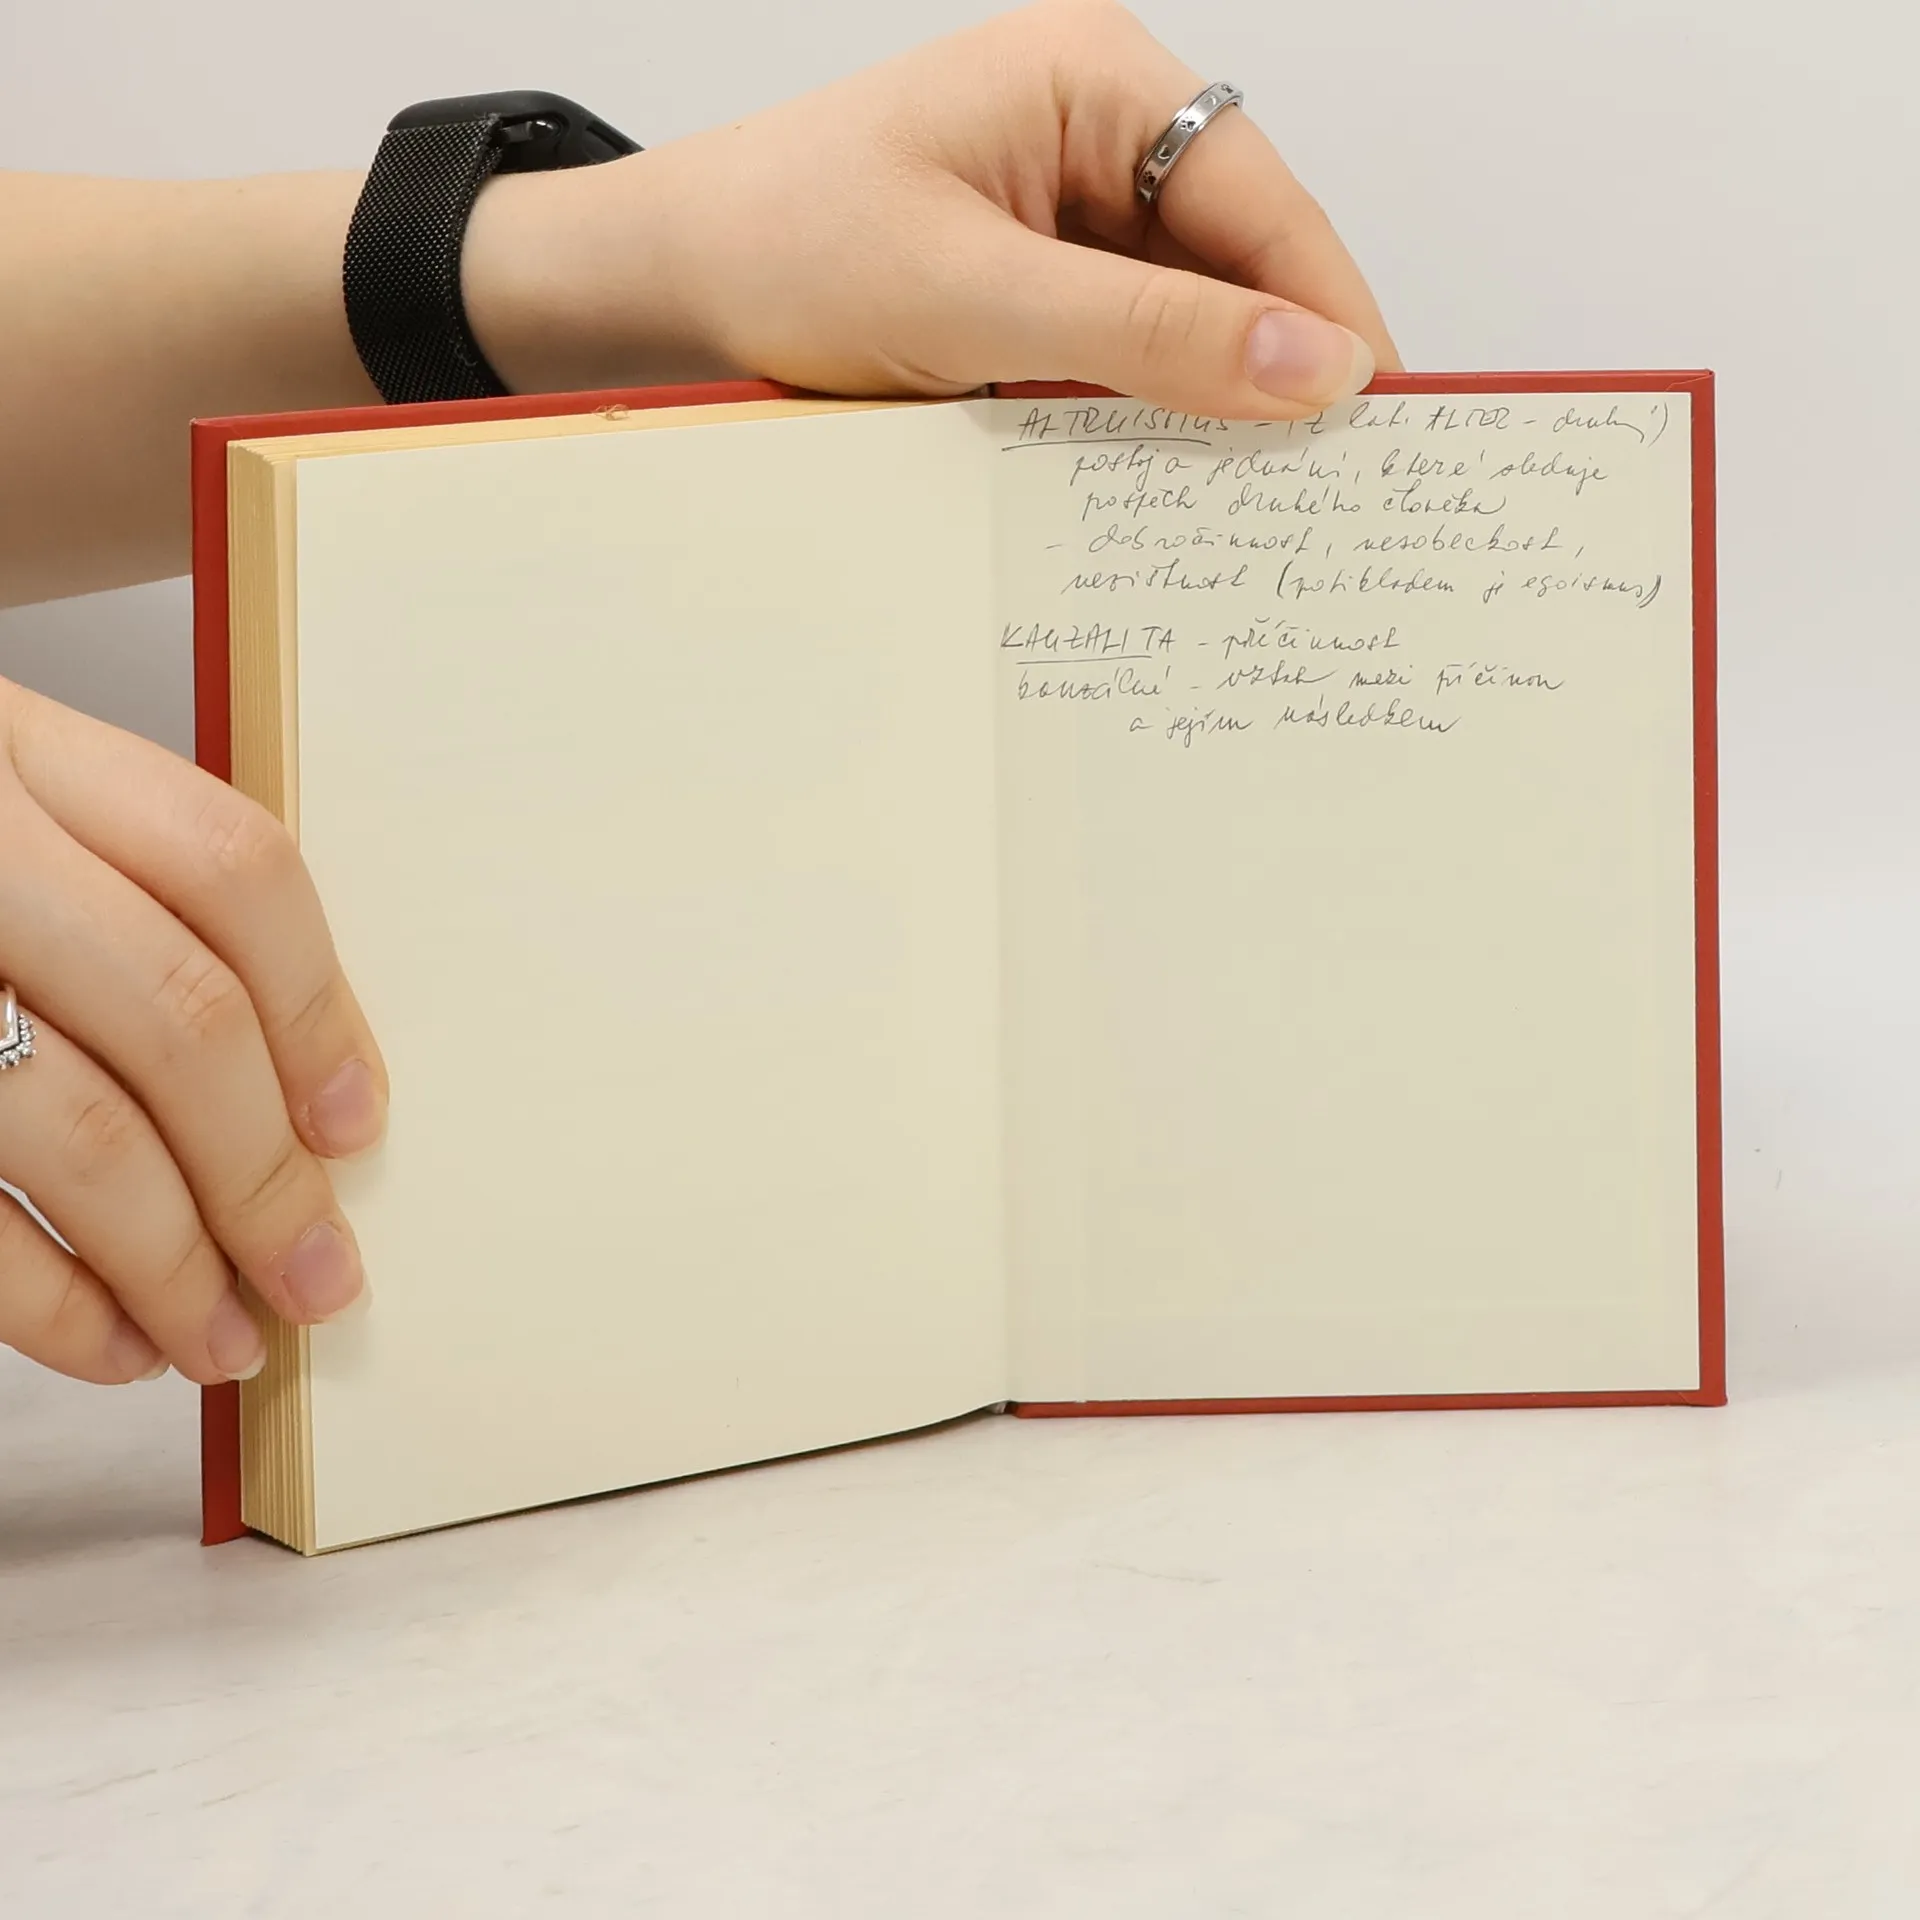 ALTRUISMUS - (z lat. ALTER - druhý)
postoj a jednání, které sleduje
pospěch druhého člověka
- dobročinnost, nesobeckost,
nezištnost (protikladem je egoismus)
KAUZALITA - příčinnost
kauzální - vztah mezi příčinou
a jejím následkem